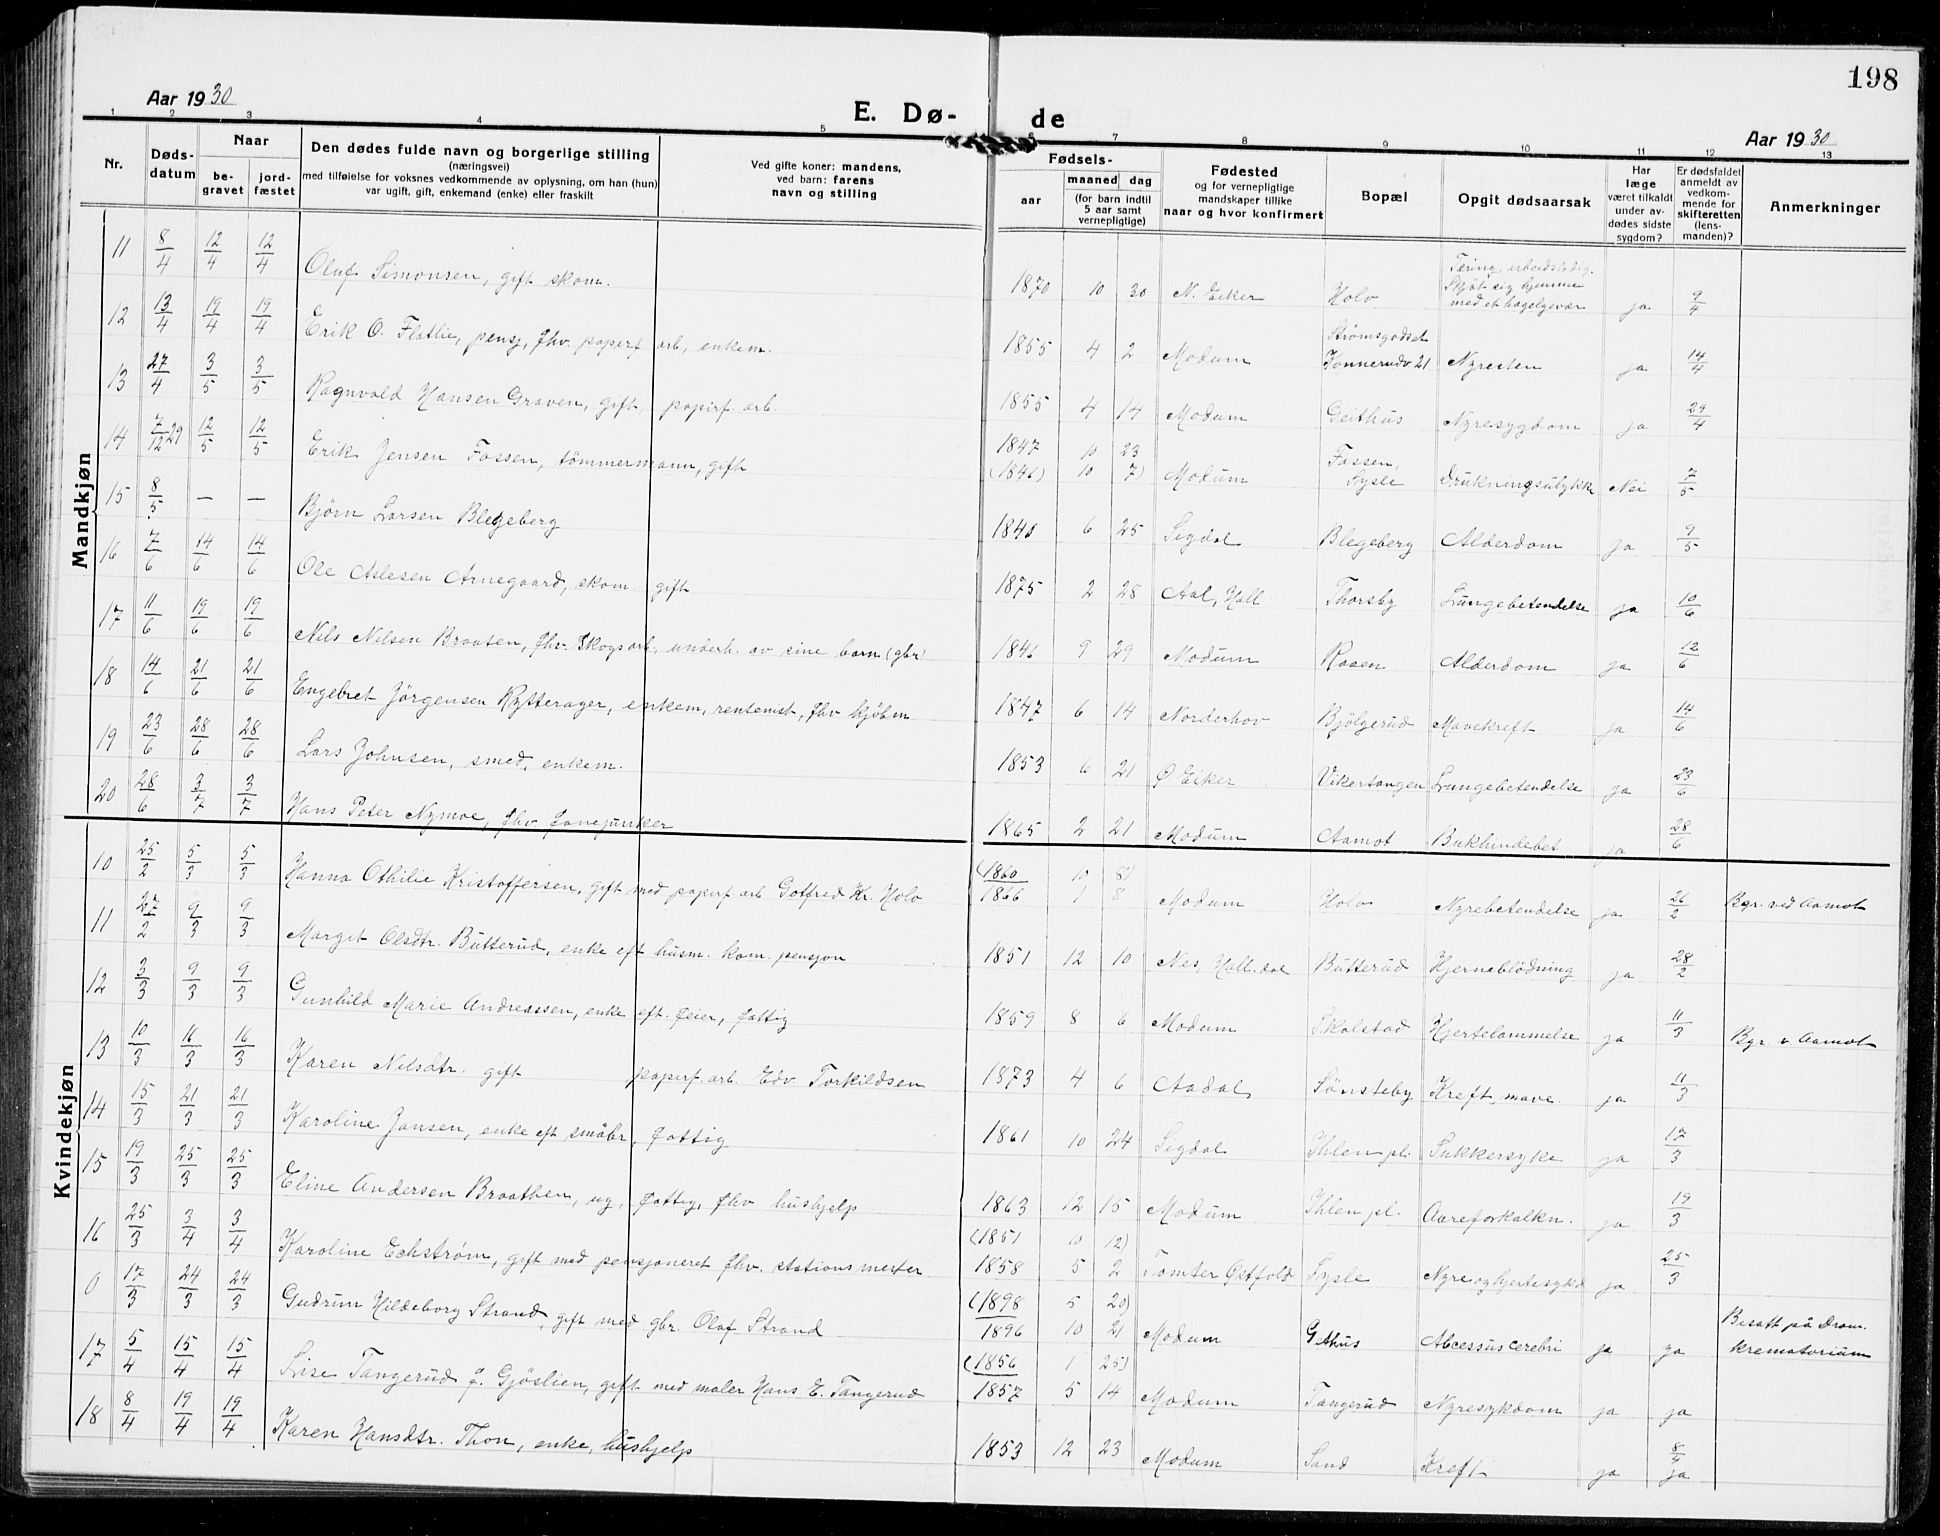 198
Aar 1930
E. Dø- de
Aar 1930
1 2 3 4 5 6 7 8 9 10 11 12 13
Nr.
Døds-
datum
Naar
be-
gravet
jord-
fæstet
Den dødes fulde navn og borgerlige stilling
(næringsvei)
med tilføielse for voksnes vedkommende av oplysning, om han (hun)
var ugift, gift, enkemand (enke) eller fraskilt
Ved gifte koner: mandens,
ved barn: farens
navn og stilling
Fødsels-
aar
maaned dag
(for barn indtil
5 aar samt
vernepligtige)
Fødested
og for vernepligtige
mandskaper tillike
naar og hvor konfirmert
Bopæl
Opgit dødsaarsak
Har
læge
været tilkaldt
under av-
dødes sidste
sygdom?
Er dødsfaldet
anmeldt av
vedkom-
mende for
skifteretten
(lens-
manden)?
Anmerkninger
Mandkjøn
11 8/4 12/4 12/4 Oluf Simonsen, gift skom. 1870 10 30 N. Eiker Holo Tæring, arbeidsledig. Skjøt sig hjemme med et hagelgevær ja 9/4
12 13/4 19/4 19/4 Erik O. Flatlie, pensj, fhv. papirf arb, enkem. 1855 4 2 Modum Strømsgodset Konnerudv 21 Nyresten ja 14/4
13 27/4 3/5 3/5 Ragnvald Hansen Graven, gift, papirf. arb. 1855 4 14 Modum Geithus Nyresygdom ja 29/4
14 7/12 29 12/5 12/5 Erik Jensen Fossen, tømmermann, gift 1847 10 23 (1846) 10 7) Modum Fossen, Sysle Drukningsulykke Nei 7/5
15 8/5 — — Bjørn Larsen Blegeberg 1840 6 25 Sigdal Blegeberg Alderdom ja 9/5
16 7/6 14/6 14/6 Ole Aslesen Arnegaard, skom. gift 1875 2 28 Aal, Hall Thorsby Lungebetendelse ja 10/6
17 11/6 19/6 19/6 Nils Nilsen Braaten, fhv. skogsarb, underh. av sine barn (gbr) 1846 9 29 Modum Raaen Alderdom ja 12/6
18 14/6 21/6 21/6 Engebret Jørgensen Rytterager, enkem, rentenist, fhv kjøbm 1847 6 14 Norderhov Bjølgerud Mavekreft ja 14/6
19 23/6 28/6 28/6 Lars Johnsen, smed, enkem. 1853 6 21 Ø Eiker Vikersangen Lungebetendelse ja 23/6
20 28/6 3/7 3/7 Hans Peter Nymoe, fhv fanejunker 1865 2 21 Modum Aamot Bukhindebet ja 28/6
Kvindekjøn
10 25/2 5/3 5/3 Hanna Othilie Kristoffersen, gift med papirf arb Gotfred Kr. Holo (1860 10 8) 1866 1 8 Modum Holo Nyrebetendelse ja 26/2 Bgr. ved Aamot
11 27/2 9/3 9/3 Marget Olsdtr. Butterud, enke eft husm. kom. pensjon 1851 12 10 Nes, Hall.dal Butterud Hjerneblødning ja 28/2
12 3/3 9/3 9/3 Gunhild Marie Andreassen, enke eft. feier, fattig 1859 8 6 Modum Skalstad Hjertelammelse ja 11/3 Bgr v Aamot
13 10/3 16/3 16/3 Karen Nilsdtr. gift papirf. arb. Edv. Torkildsen 1873 4 6 Aadal Sønsteby Kreft, mave. ja 11/3
14 15/3 21/3 21/3 Karoline Jansen, enke eft småbr, fattig 1861 10 24 Sigdal Ihlen pl. Sukkersyke ja 17/3
15 19/3 25/3 25/3 Eline Andersen Braathen, ug, fattig, fhv hushjelp 1863 12 15 Modum Ihlen pl. Aareforkalkn. ja 19/3
16 25/3 3/4 3/4 Karoline Echstrøm, gift med pensjoneret fhv. stationsmester (1851 10 12) 1858 5 2 Tomter Østfold Sysle Nyre og hjertesykd ja 25/3
0 17/3 24/3 24/3 Gudrun Hildeborg Strand, gift med gbr. Olaf Strand (1898 5 20) 1896 10 21 Modum Gethus Abcessus cerebri ja ja Bisatt på Dram. krematorium
17 5/4 15/4 15/4 Lise Tangerud f. Gjøslien, gift med maler Hans E. Tangerud (1856 1 25) 1857 5 14 Modum Tangerud Nyresykdom ja ja
18 8/4 19/4 19/4 Karen Hansdtr. Thon, enke, hushjelp 1853 12 23 Modum Sand Kreft ja 8/4 ja